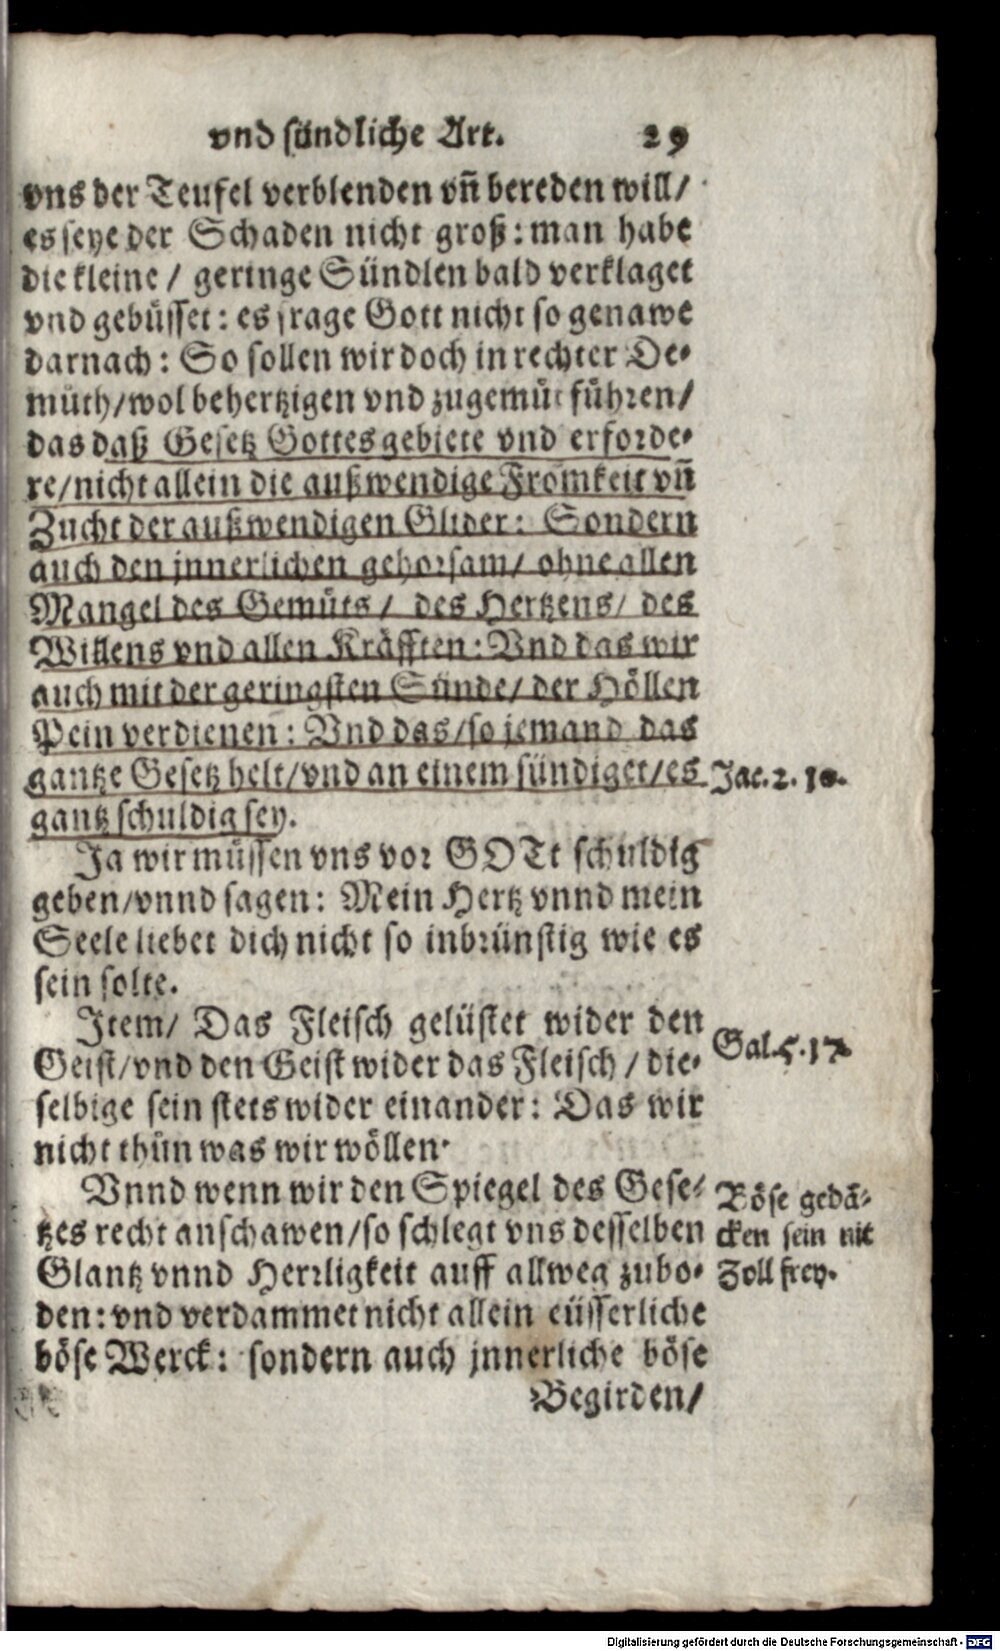 vnd sündliche Art. 29
vns der Teufel verblenden vñ bereden will/
es seye der Schaden nicht groß: man habe
die kleine / geringe Sündlen bald verklaget
vnd gebüsset: es frage Gott nicht so genawe
darnach: So sollen wir doch in rechter De-
müth/wol behertzigen vnd zugemüt führen/
das daß Gesetz Gottes gebiete vnd erforde-
re/nicht allein die außwendige Fromkeit vñ
Zucht der außwendigen Glider: Sondern
auch den jnnerlichen gehorsam/ ohne allen
Mangel des Gemüts / des Hertzens/ des
Willens vnd allen Kräfften: Vnd das wir
auch mit der geringsten Sünde/ der Höllen
Pein verdienen: Vnd das/so jemand das
gantze Gesetz helt/vnd an einem sündiget/es
Jac. 2. 10.
gantz schuldig sey.
Ja wir müssen vns vor GOTt schuldig
geben/vnnd sagen: Mein Hertz vnnd mein
Seele liebet dich nicht so inbrünstig wie es
sein solte.
Item/ Das Fleisch gelüstet wider den
Geist/vnd den Geist wider das Fleisch / die-
Gal. 5. 17.
selbige sein stets wider einander: Das wir
nicht thün was wir wöllen.
Vnnd wenn wir den Spiegel des Gese-
tzes recht anschawen/so schlegt vns desselben
Glantz vnnd Herrligkeit auff allweg zubo-
den: vnd verdammet nicht allein eüsserliche
böse Werck: sondern auch jnnerliche böse
Begirden/
Böse gedã-
cken sein nit
Zoll frey.
Digitalisierung gefördert durch die Deutsche Forschungsgemeinschaft - DFG